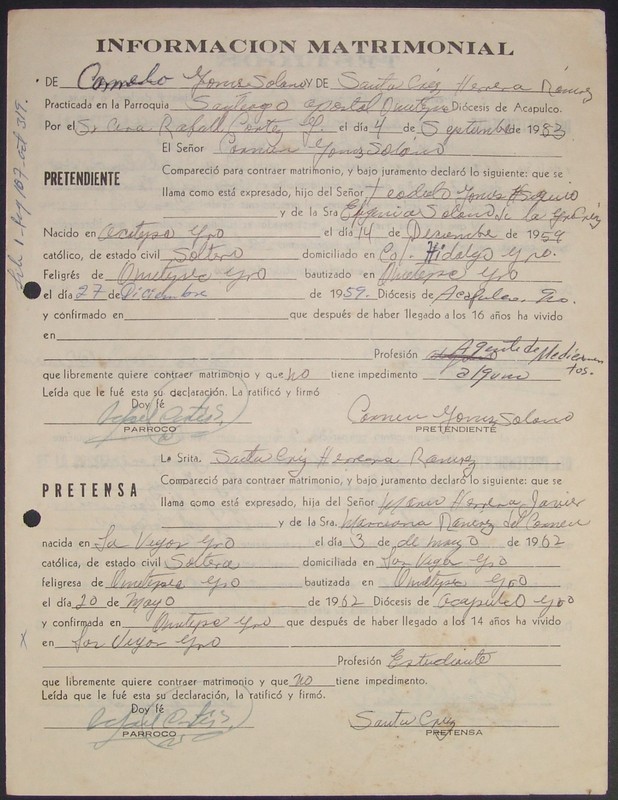 INFORMACION MATRIMONIAL
DE Gomez Solano Y DE Santa Cruz Herrera Ramirez
Practicada en la Parroquia Santiago apostol Ometepec Diócesis de Acapulco.
Por el Sr Cura Rafael Cortez el día 4 de Septiembre de 1983
El Señor Carmen Gomez Solano
PRETENDIENTE
Compareció para contraer matrimonio, y bajo juramento declaró lo siguiente: que se
llama como está expresado, hijo del Señor Gomez
y de la Sra Efigenia Solano de la Cruz
Nacido en Gro el día 14 de Diciembre de 1959
católico, de estado civil Soltero domiciliado en Col. Hidalgo Gro.
Feligrés de Ometepec Gro bautizado en Ometepec Gro
el día 27 de Diciembre de 1959. Diócesis de Acapulco, Gro.
y confirmado en que después de haber llegado a los 16 años ha vivido
en
Profesión Agente de Medicamentos.
que libremente quiere contraer matrimonio y que no tiene impedimento alguno
Leída que le fué esta su declaración. La ratificó y firmó
Doy fé
Rafael Cortes Carmen Gomez Solano
PARROCO PRETENDIENTE
La Srita. Santa Cruz Herrera Ramirez
PRETENSA
Compareció para contraer matrimonio, y bajo juramento declaró lo siguiente: que se
llama como está expresado, hija del Señor Herrera Javier
y de la Sra. Marciana Ramirez del Carmen
nacida en Gro el día 3 de de mayo de 1962
católica, de estado civil Soltera domiciliada en Gro
feligresa de Ometepec Gro bautizada en Ometepec Gro
el día 20 de Mayo de 1962 Diócesis de acapulco Gro
y confirmada en Ometepec Gro que después de haber llegado a los 14 años ha vivido
en Gro
Profesión Estudiante
que libremente quiere contraer matrimonio y que no tiene impedimento.
Leída que le fué esta su declaración, la ratificó y firmó.
Doy fé
Rafael Cortes Santa Cruz
PARROCO PRETENSA